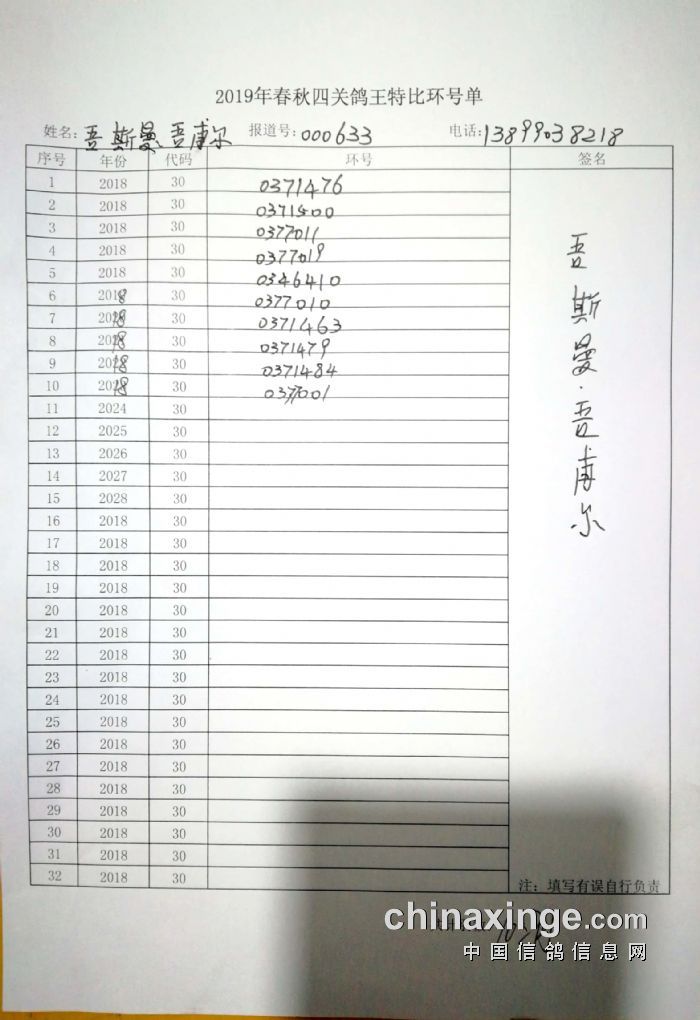 2019年春秋四关鸽王特比环号单
姓名: 吾斯曼.吾甫尔 报道号: 000633 电话: 13899038218
序号 年份 代码 环号 签名
1 2018 30 0371476
2 2018 30 0371500
3 2018 30 0377011
4 2018 30 0377019
5 2018 30 0346410
6 2018 30 0377010
7 2018 30 0371463
8 2018 30 0371479
9 2018 30 0371484
10 2018 30 0377001
11 2024 30
12 2025 30
13 2026 30
14 2027 30
15 2028 30
16 2018 30
17 2018 30
18 2018 30
19 2018 30
20 2018 30
21 2018 30
22 2018 30
23 2018 30
24 2018 30
25 2018 30
26 2018 30
27 2018 30
28 2018 30
29 2018 30
30 2018 30
31 2018 30
32 2018 30
吾斯曼.吾甫尔
注: 填写有误自行负责
chinaxinge.com
中国信鸽信息网